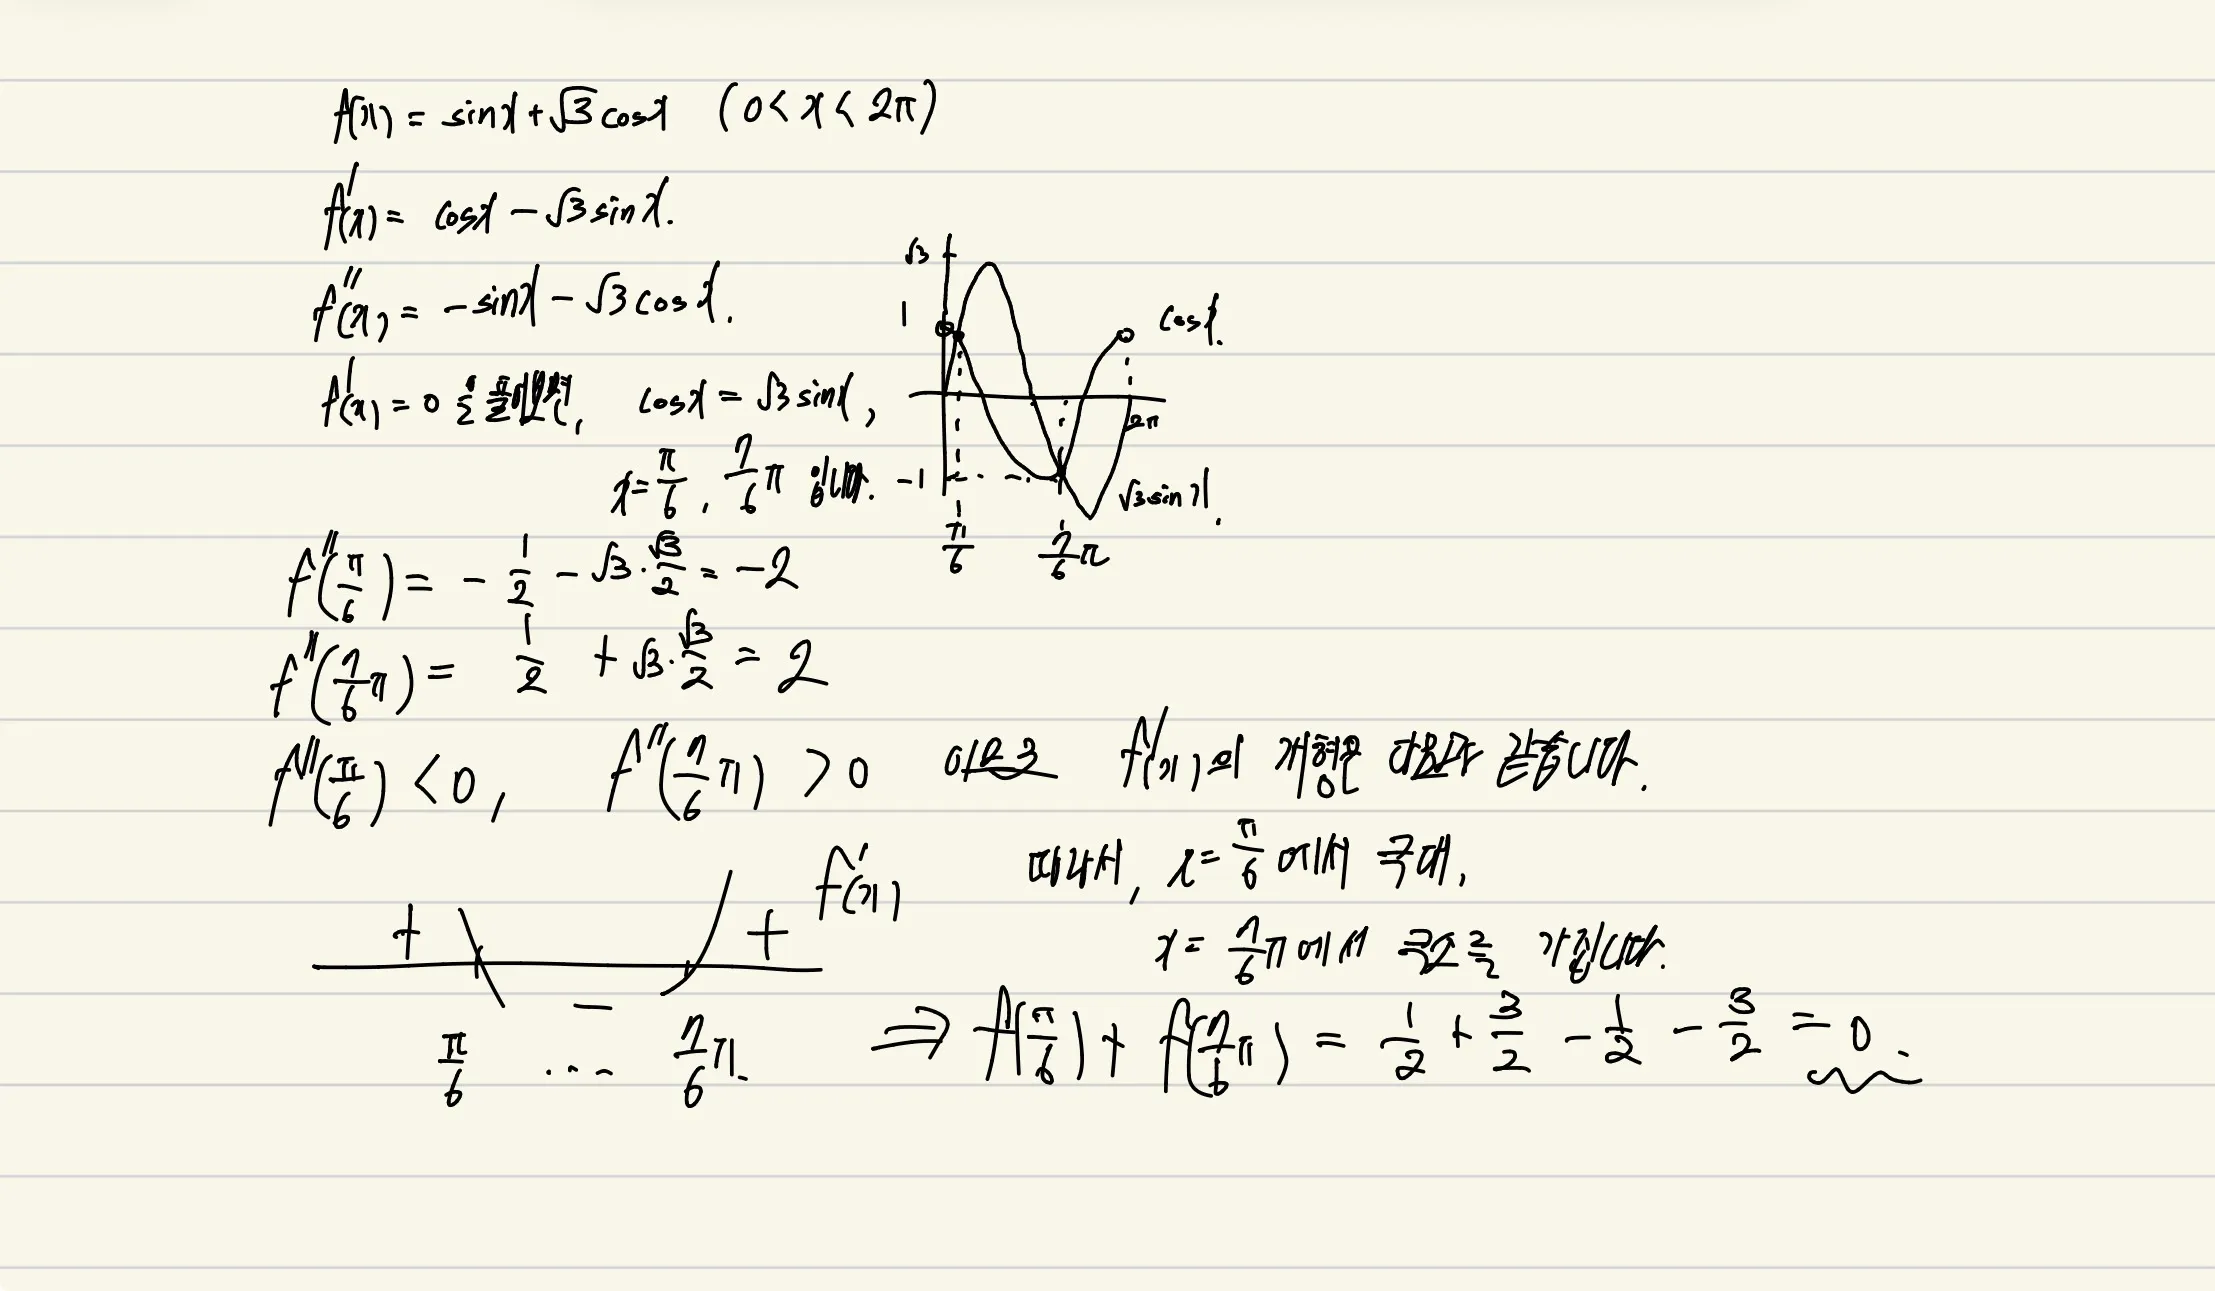 f(x) = sinx + √3 cosx (0 < x < 2π)
f'(x) = cosx - √3 sinx.
f''(x) = -sinx - √3 cosx.
f'(x) = 0 을 풀어보면, cosx = √3 sinx,
x = π/6, 7/6 π 입니다.
√3
1
-1
π/6
7/6 π
2π
cosx.
√3 sinx.
f''(π/6) = - 1/2 - √3 · √3/2 = -2
f''(7/6 π) = 1/2 + √3 · √3/2 = 2
f''(π/6) < 0, f''(7/6 π) > 0 이므로 f'(x)의 개형은 다음과 같습니다.
따라서, x = π/6 에서 극대,
x = 7/6 π 에서 극소를 가집니다.
+ - + f'(x)
π/6 ... 7/6 π.
⇒ f(π/6) + f(7/6 π) = 1/2 + 3/2 - 1/2 - 3/2 = 0.